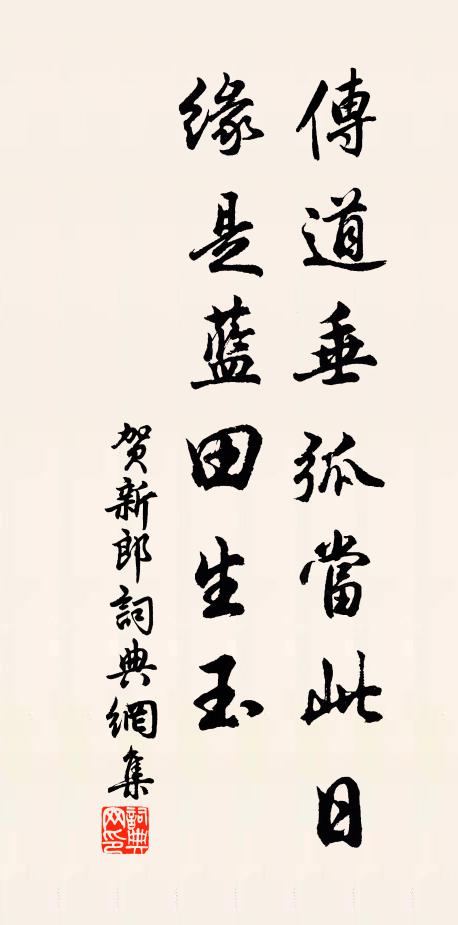 傳道垂弧當此日
緣是藍田生玉
賀新郎詞典網集
詞典網印